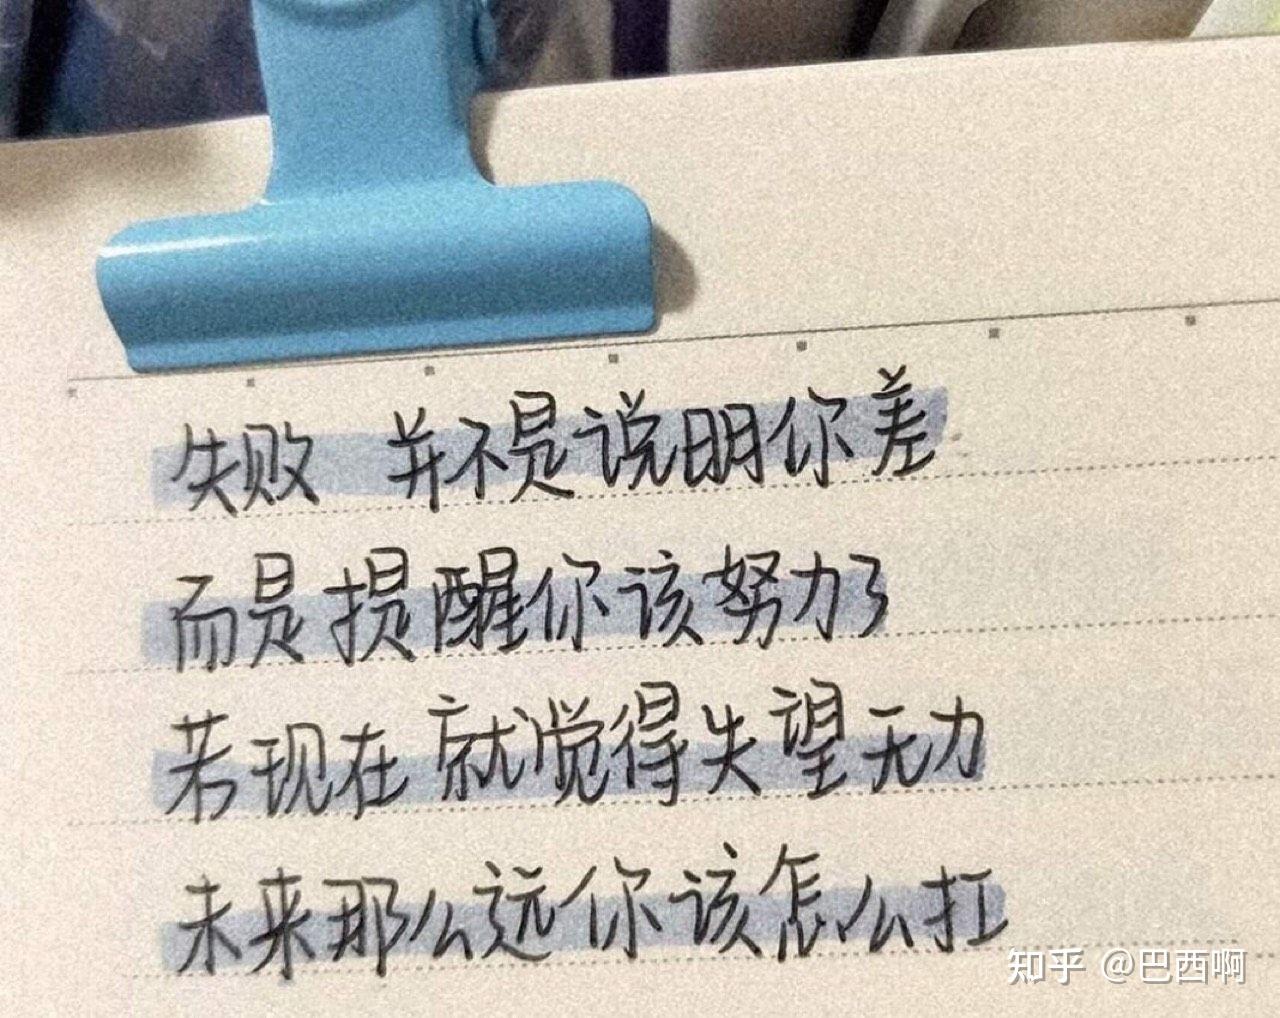 失败 并不是说明你差
而是提醒你该努力了
若现在就觉得失望无力
未来那么远你该怎么扛
知乎 @巴西啊